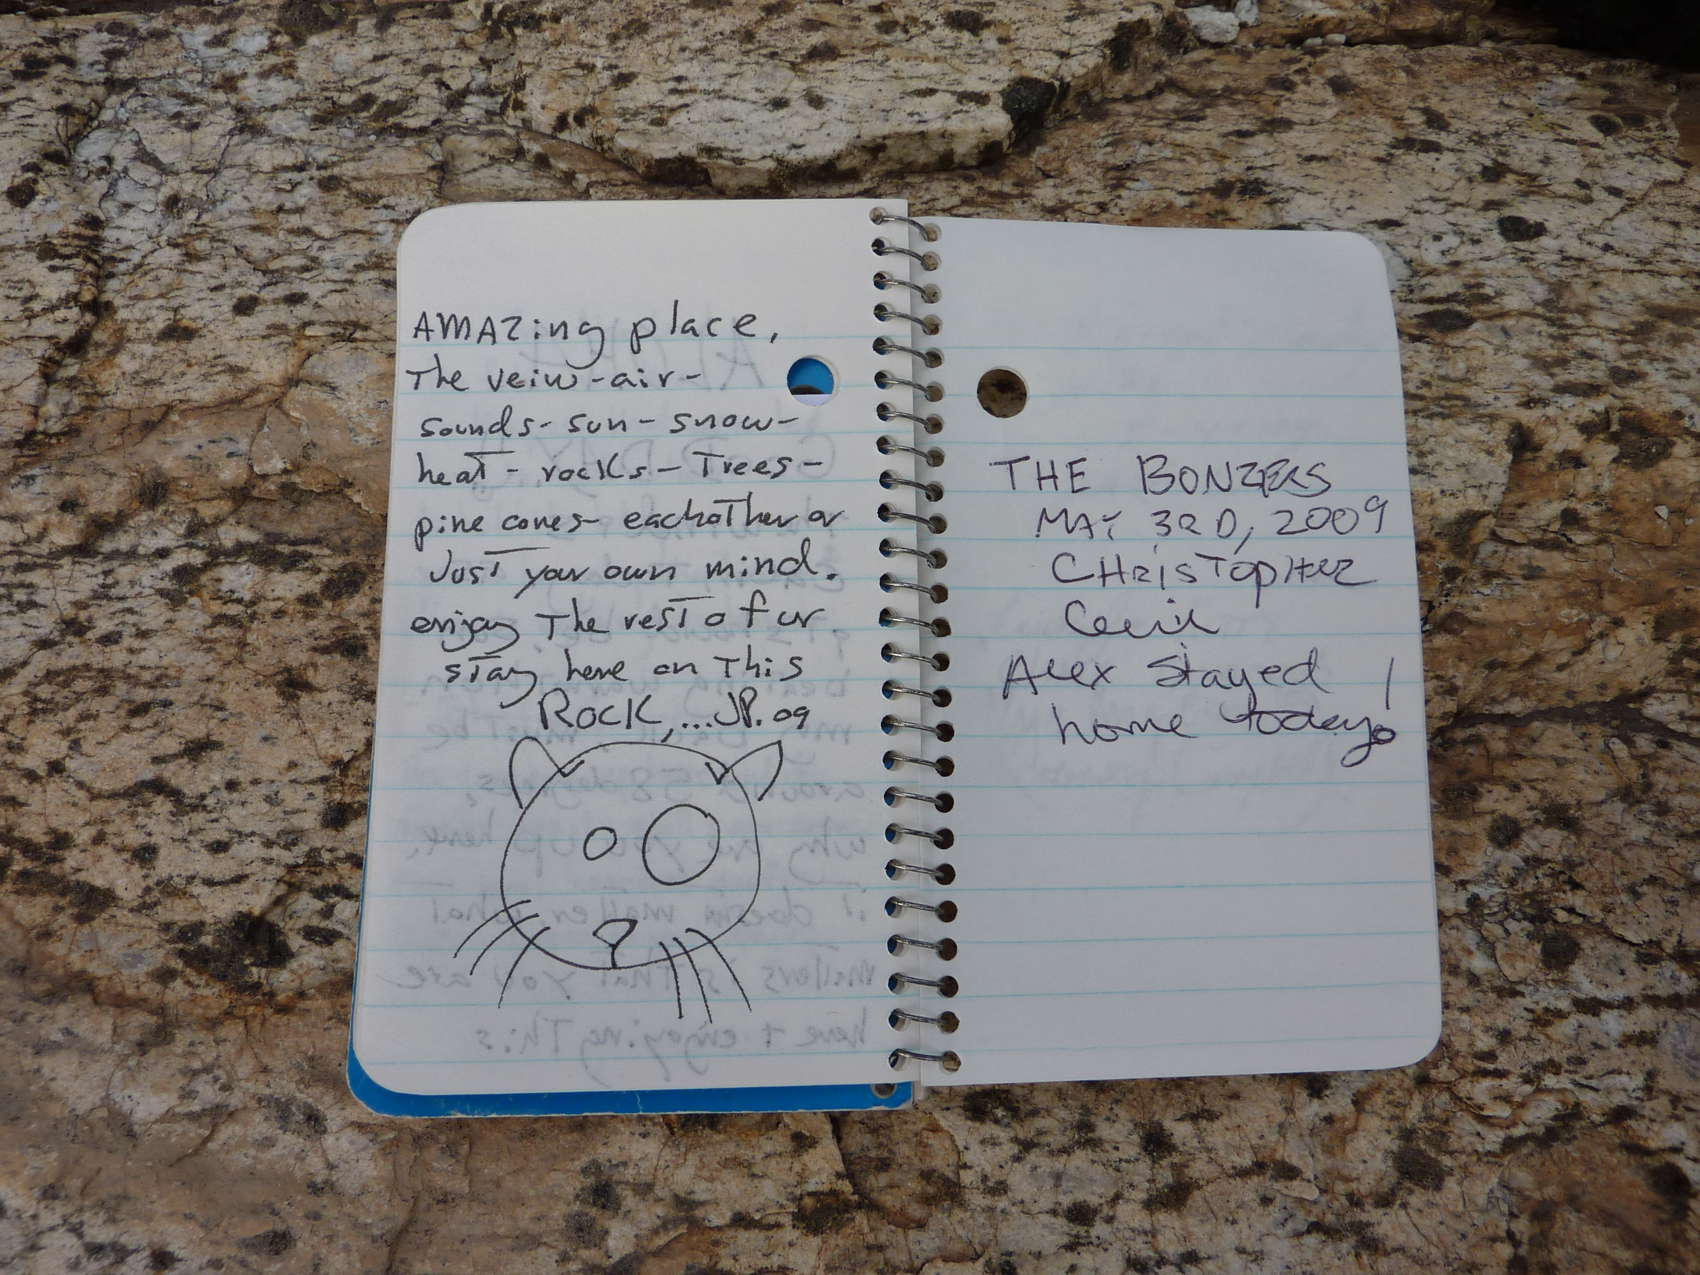 AMAZing place,
The veiw-air-
sounds- sun- snow-
heat- rocks- Trees-
pine cones- eachother or
Just your own mind.
enjoy The rest of ur
stay here on This
ROCK,...JP.09
THE BONZERS
MAY 3RD, 2009
CHRISTOPHER
Alex stayed
home today!